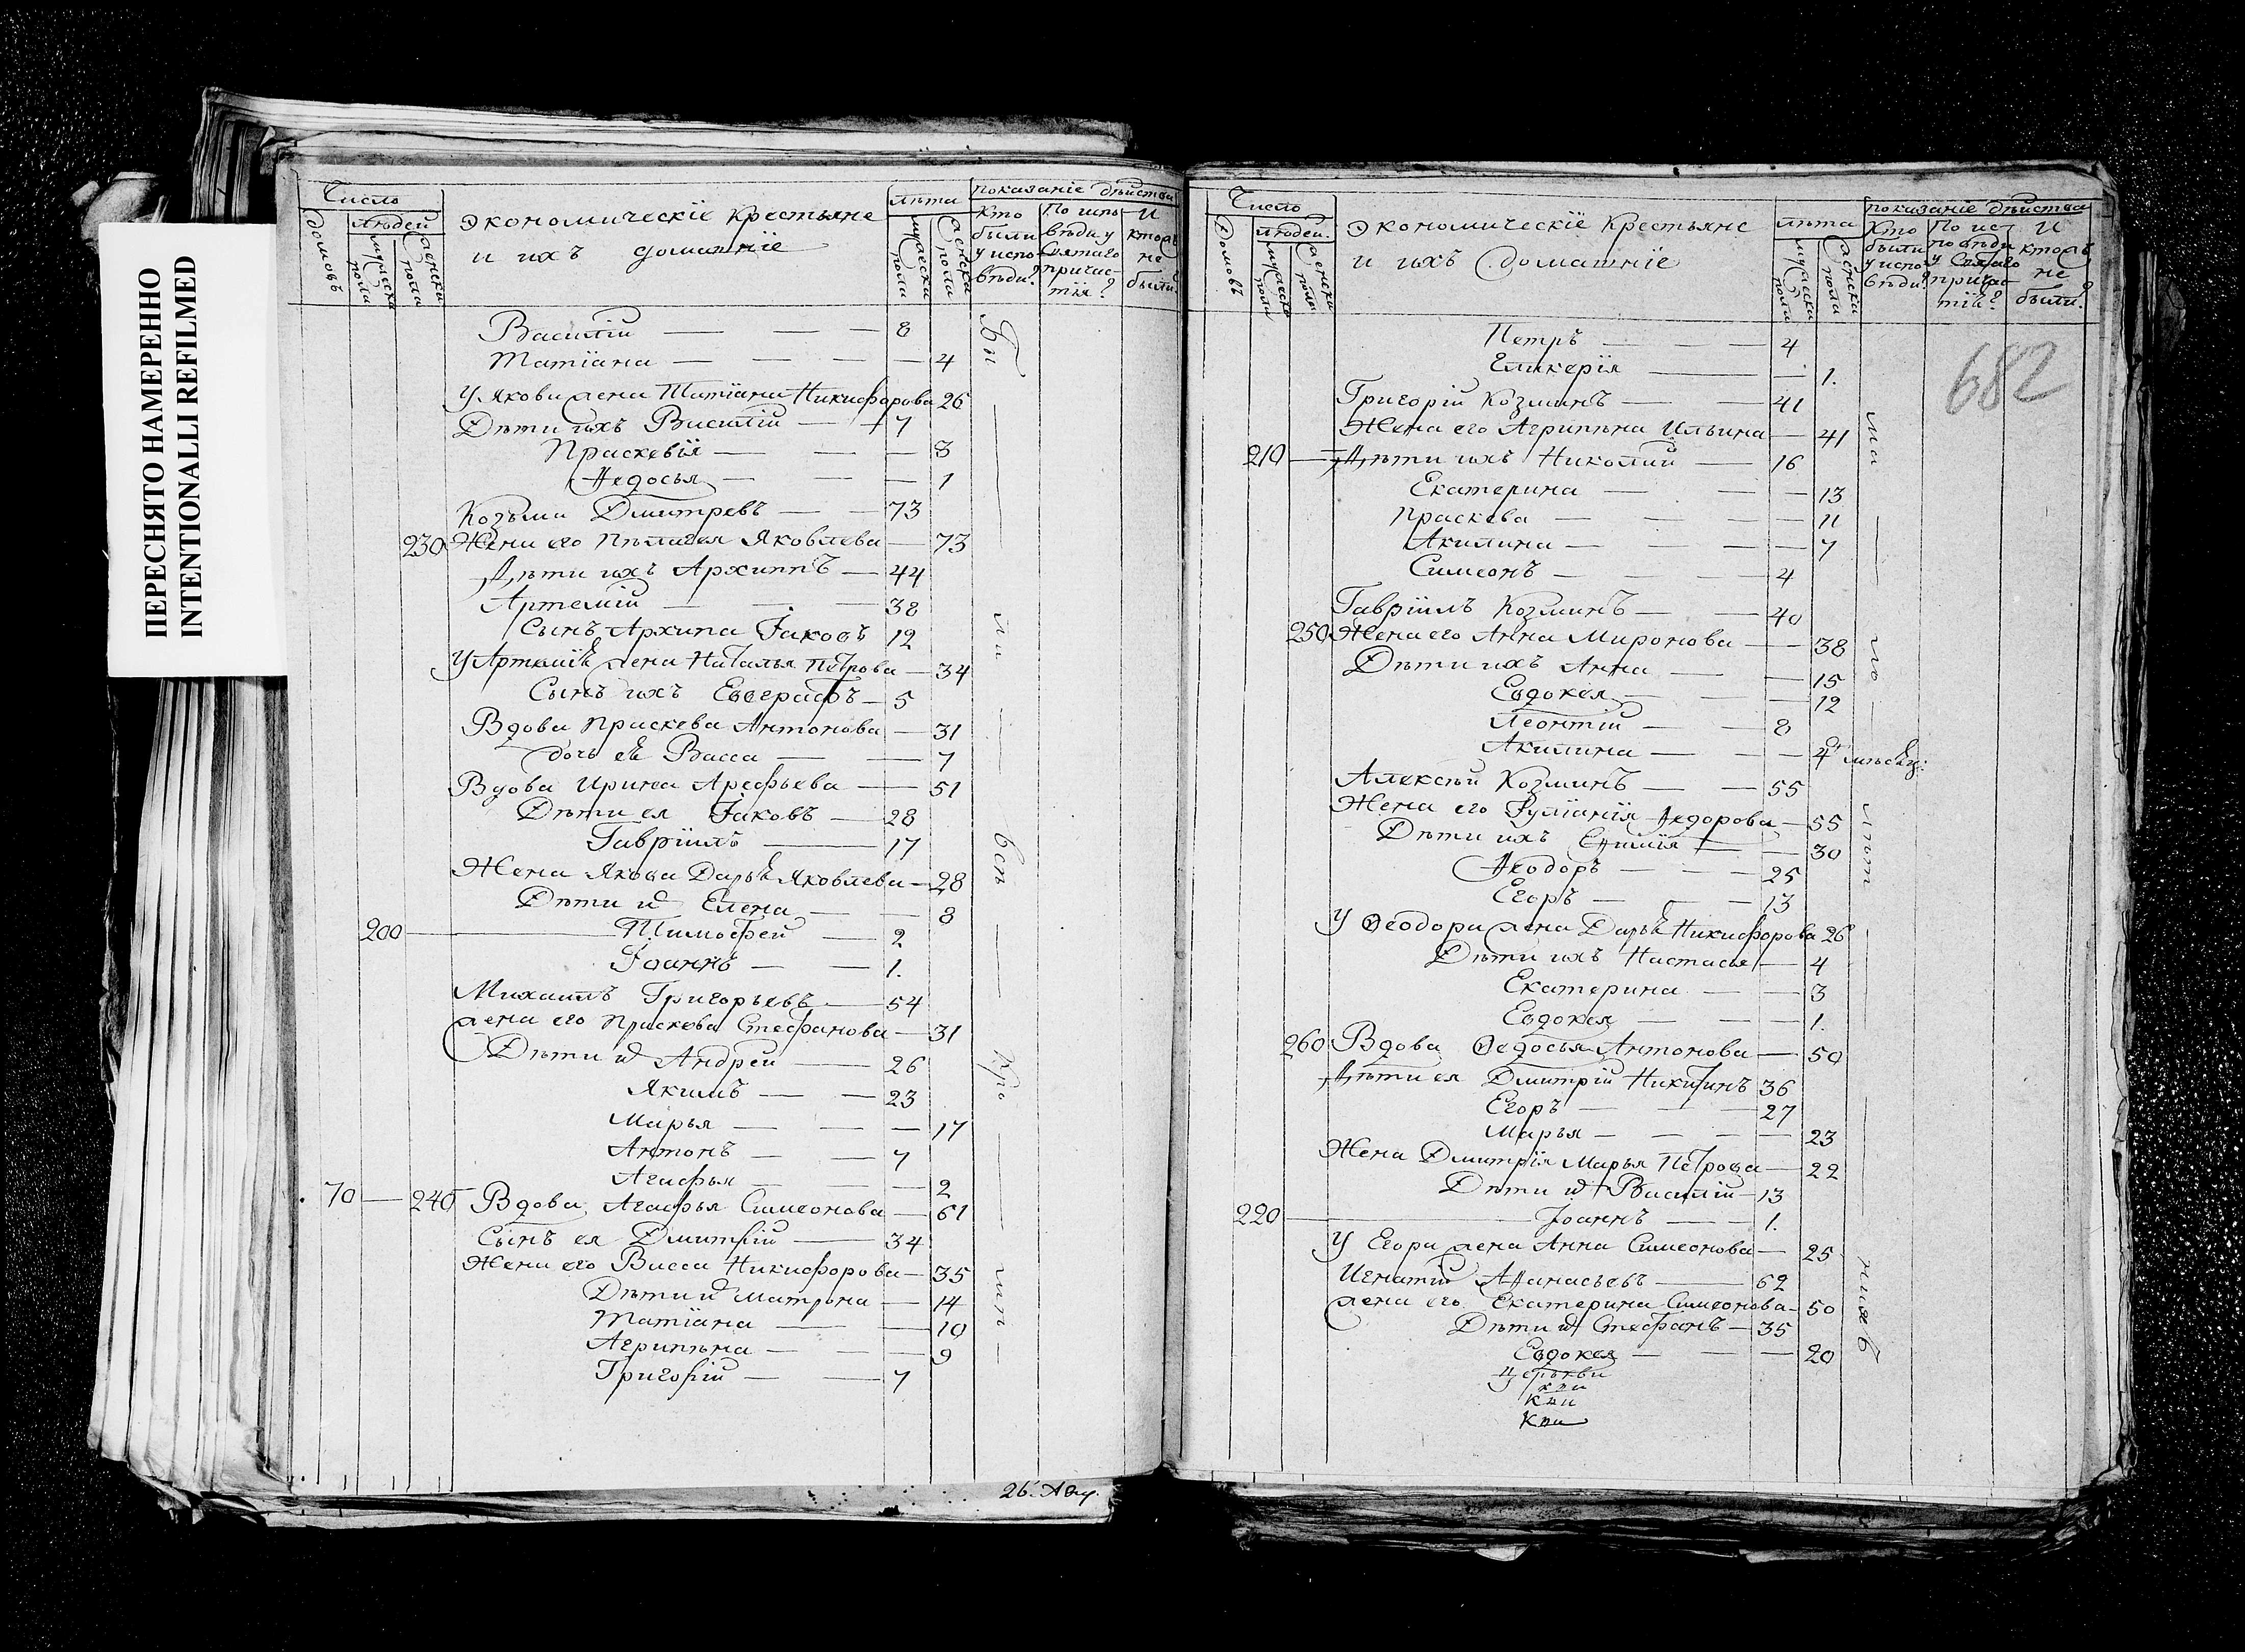 ПЕРЕСНЯТО НАМЕРЕННО
INTENTIONALLI REFILMED
Число
домовъ
людей
мужеска пола
женска пола
Экономическіе крестьяне
и ихъ домашніе
лѣта
мужеска пола
женска пола
показаніе дѣйства
Кто были у исповѣди?
По исповѣди у Святаго причастія?
И ктожъ не были?
Василій — 8
Татіана — 4
У Якова жена Татіана Никифорова 26
Дѣти ихъ Василій — 7
Праскевія — 3
Ѳедосья — 1
Козьма Дмитревъ — 73
230 Жена его Пелагея Яковлева — 73
Дѣти ихъ Архиппъ — 44
Артемій — 38
Сынъ Архипа Іаковъ 12
У Артемія жена Наталья Петрова — 34
Сынъ ихъ Евеграфъ — 5
Вдова Праскева Антонова — 31
дочь ея Васса — 7
Вдова Ирина Арефьева — 51
Дѣти ея Іаковъ — 28
Гавріилъ — 17
Жена Якова Дарья Яковлева — 28
Дѣти их Елена — 8
200 — Тимофей — 2
Іоаннъ — 1.
Михаилъ Григорьевъ — 54
жена его Праскева Стефанова — 31
Дѣти их Андрей — 26
Якимъ — 23
Марья — 17
Антонъ — 7
Агафья — 2
70 — 240 Вдова Агафья Симеонова — 61
Сынъ ея Дмитрій — 34
Жена его Васса Никифорова — 35
Дѣти их Матрона — 14
Татіана — 10
Агрипѣна — 9
Григорій — 7
26. Авгу.
682
Число
домовъ
людей.
мужеска пола
женска пола
Экономическіе крестьяне
и ихъ домашніе
лѣта
мужеска пола
женска пола
показаніе дѣйства
Кто были у исповѣди?
По исповѣди у Святаго причастія?
И ктожъ не были?
Петръ — 4
Гликерія — 1.
Григорій Козминъ — 41
Жена его Агрипѣна Ильина — 41
210 — Дѣти ихъ Николай — 16
Екатерина — 13
Праскева — 11
Акилина — 7
Симеонъ — 4
Гавріилъ Козминъ — 40
250 Жена его Анна Миронова — 38
Дѣти ихъ Анна — 15
Евдокея — 12
Леонтій — 8
Акилина — 4
Алексѣй Козминъ — 55
Жена его Іуліанія Ѳедорова — 55
Дѣти ихъ — 30
Ѳеодоръ — 25
Егоръ — 13
У Ѳеодора жена Дарья Никифорова 26
Дѣти ихъ Настасья — 4
Екатерина — 3
Евдокея — 1.
260 Вдова Ѳедосья Антонова — 50
Дѣти ея Дмитрій Никитинъ 36
Егоръ — 27
Марья — 23
Жена Дмитрія Марья Петрова — 22
Дѣти их Василій — 13
220 — Іоаннъ — 1.
У Егора жена Анна Симеонова — 25
Игнатій Аѳанасьевъ — 62
жена его Екатерина Симеонова — 50
Дѣти их Стефанъ — 35
Евдокея — 20